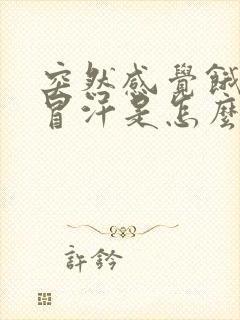 突然感覺餓
冒汗是怎麼
許鈐